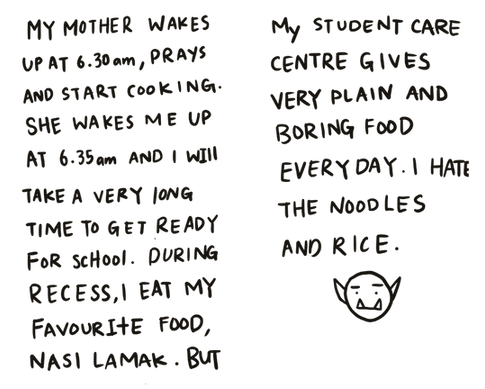 MY MOTHER WAKES
UP AT 6.30am, PRAYS
AND START COOKING.
SHE WAKES ME UP
AT 6.35am AND I WIll
TAKE A VERY lONG
TIME TO GET READY
FOR SCHOOl. DURING
RECESS, I EAT MY
FAVOURITE FOOD,
NASI LAMAK. BUT
My STUDENT CARE
CENTRE GIVES
VERY PLAIN AND
BORING FOOD
EVERYDAY. I HATE
THE NOODLES
AND RICE.